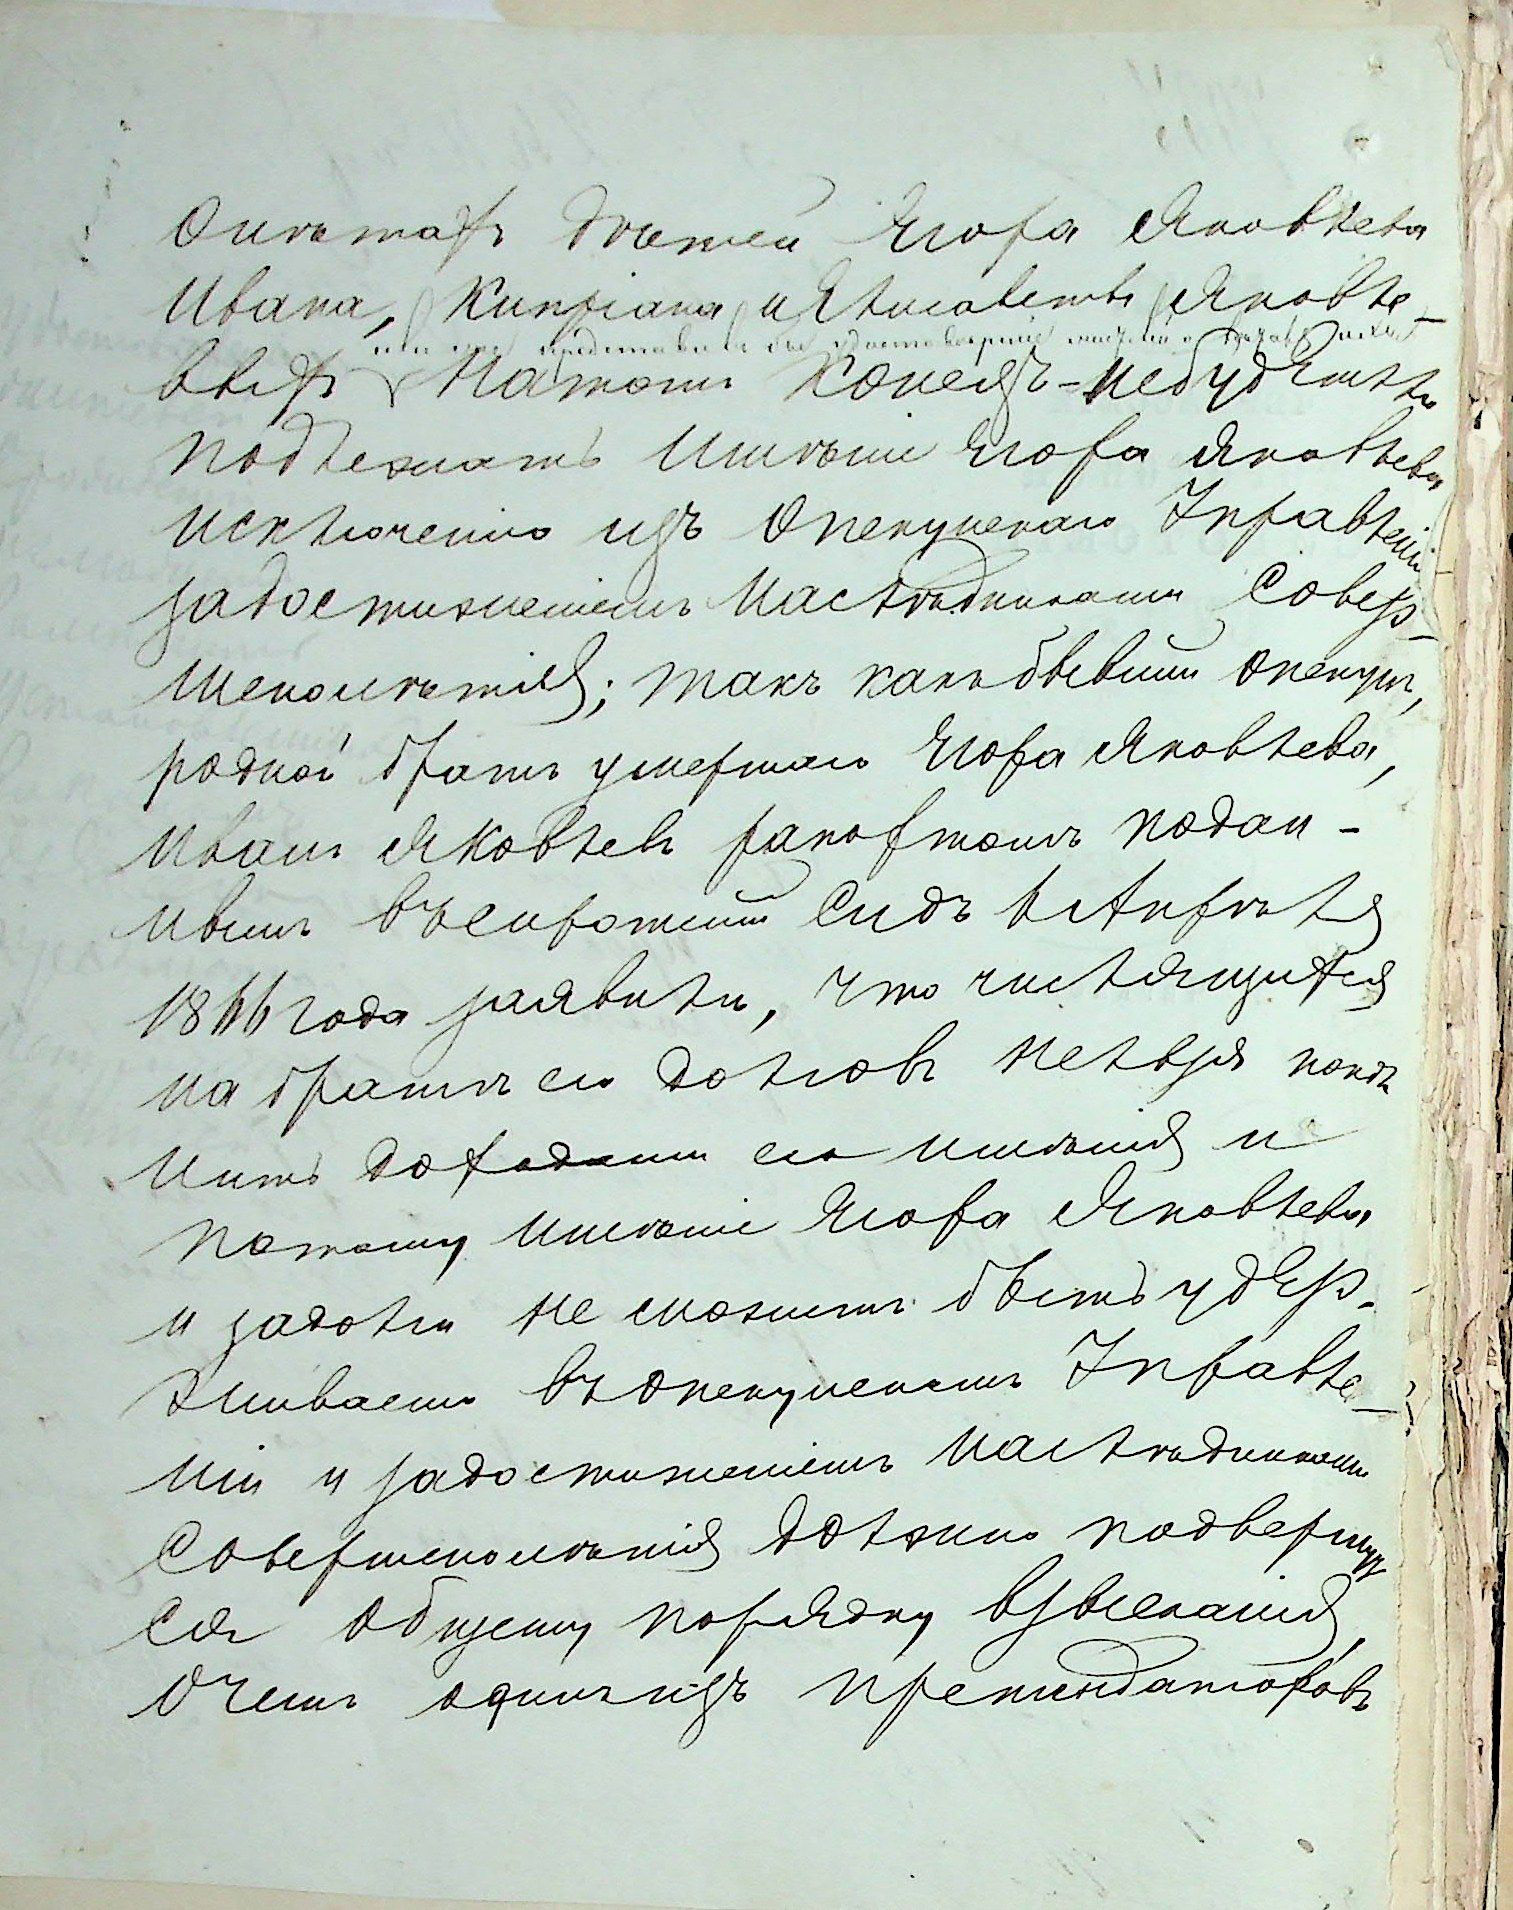 О летахъ детей Егора Яковлева
Ивана, Кипріана и Елисаветы Яковле-
или не представилъ бы удостоверение
выхъ на тотъ конецъ - не будетъ ли
подлежать имѣніе Егора Яковлева
исключенію изъ Опекунскаго Управленія
за достиженіемъ наслѣдниками Совер-
шенолѣтія; такъ какъ бывшій опекунъ,
родной братъ умершаго Егора Яковлева,
Иванъ Яковлевъ рапортомъ подан-
нымъ въ Сиротскій Судъ въ Апрѣлѣ
1866 года заявилъ, что числящихся
на братѣ его долговъ нельзя попол-
нить доходами его имѣнія и
потому имѣніе Егора Яковлева
и за долги не можетъ быть удер-
живаемо въ опекунскомъ Управле-
ніи и за достиженіемъ наслѣдниками
Совершенолѣтія должно подвергнут-
ся общему порядку взысканія,
о чемъ одинъ изъ претендаторовъ